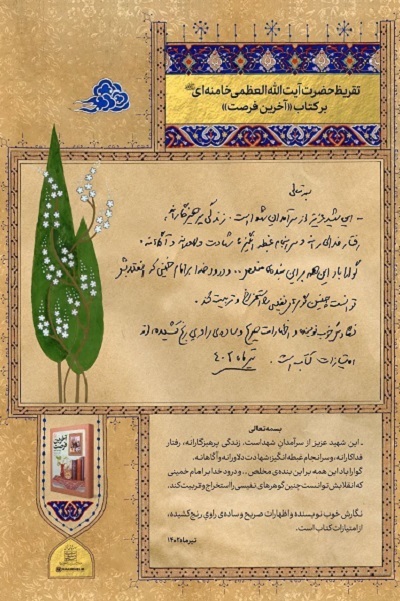 تقریظ حضرت آیت الله العظمی خامنه‌ای
بر کتاب «آخرین فرصت»
بسمه تعالی
ـ این شهید عزیز از سرآمدان شهدا است. زندگی پرهیزگارانه،
رفتار فداکارانه، و سرانجام غبطه انگیز؛ شهادت دلاورانه و آگاهانه.
گوارا باد این همه بر این بنده‌ی مخلص .. و درود خدا بر امام خمینی که انقلابش
توانست چنین گوهرهای نفیسی را استخراج و تربیت کند.
نگارش خوب نویسنده و اظهارات صریح و ساده‌ی راوی رنج کشیده، از
امتیازات کتاب است. تیرماه ۱۴۰۲
بسمه تعالی
ـ این شهید عزیز از سرآمدان شهداست، زندگی پرهیزگارانه، رفتار
فداکارانه، و سرانجام غبطه انگیز؛ شهادت دلاورانه و آگاهانه.
گوارا باد این همه بر این بنده‌ی مخلص .. و درود خدا بر امام خمینی
که انقلابش توانست چنین گوهرهای نفیسی را استخراج و تربیت کند.
نگارش خوب نویسنده و اظهارات صریح و ساده‌ی راویِ رنج کشیده،
از امتیازات کتاب است.
تیرماه ۱۴۰۲
آخرین
فرصت